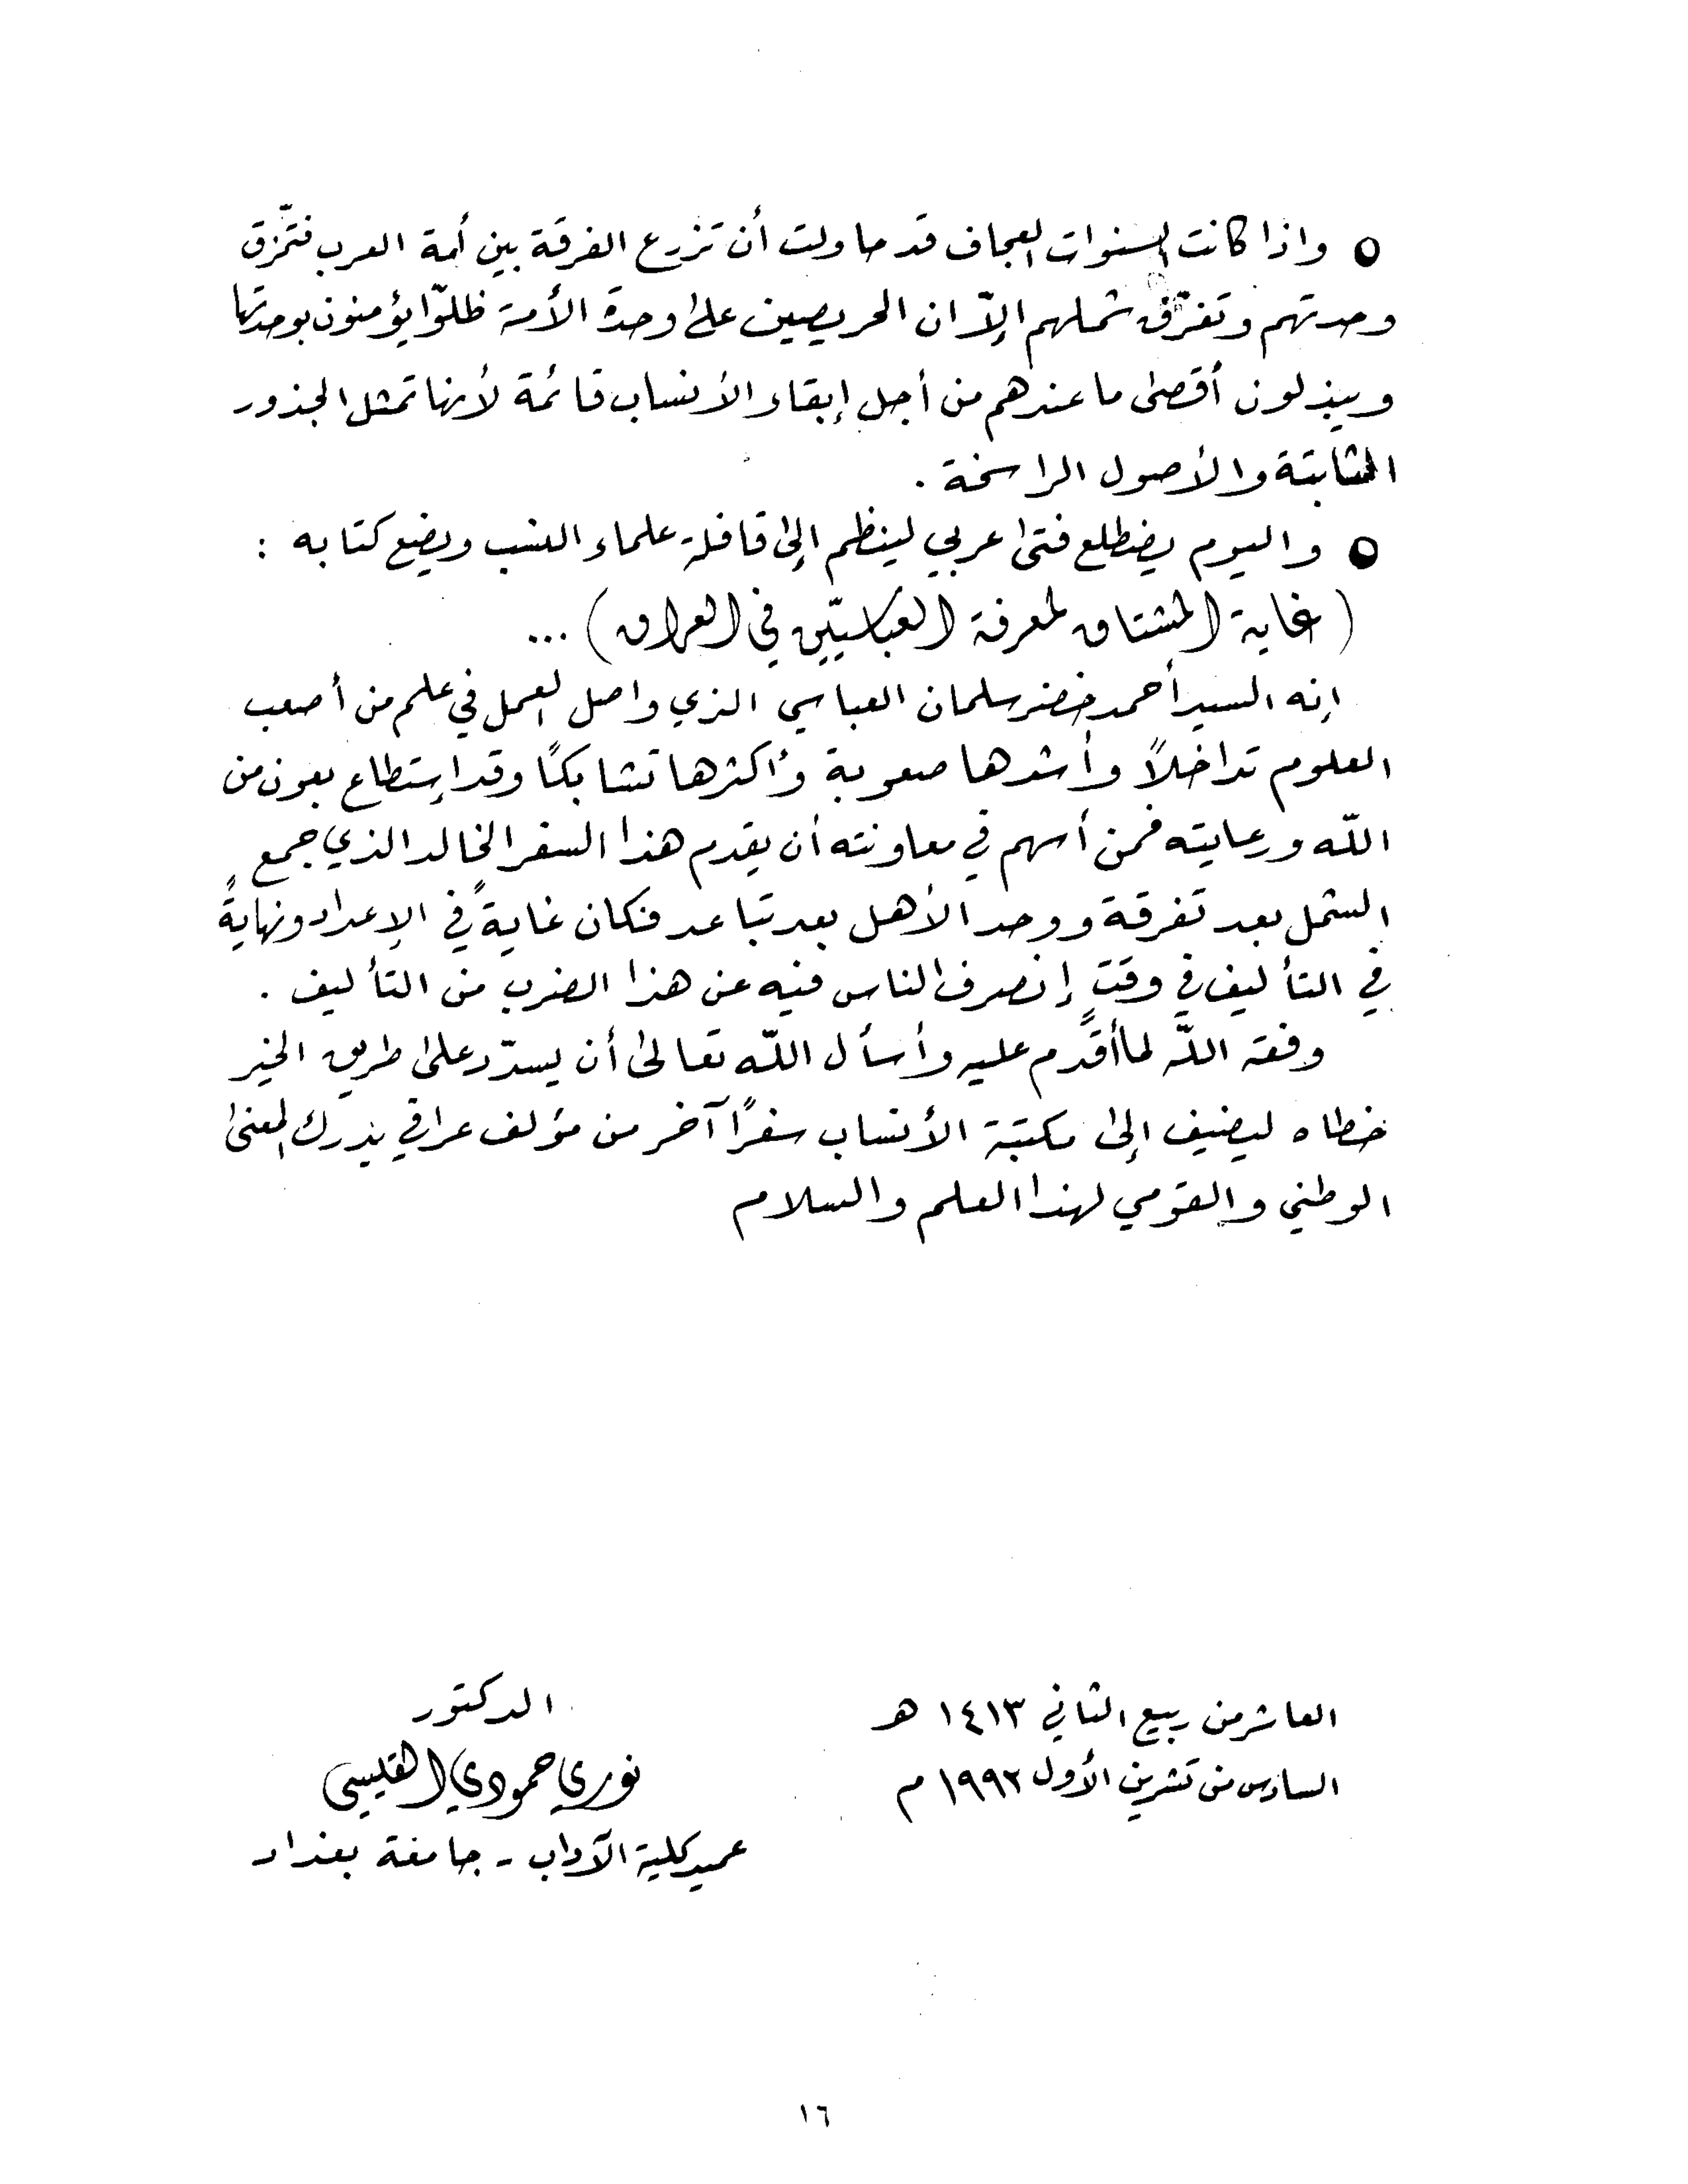 o واذا كانت السنوات العجاف قد حاولت أن تزرع الفرقة بين أمة العرب فتمّزق
وحدتهم وتفرّق شملهم إلاّ ان الحريصين على وحدة الأمة ظلوّا يؤمنون بوحدتها
ويبذلون أقصى ما عندهم من أجل إبقاء الأنساب قائمة لأنها تمثل الجذور
الثابتة والأصول الراسخة .
o واليوم يضطلع فتى عربي لينظم إلى قافلة علماء النسب ويضع كتابه :
( غاية المشتاق لمعرفة العباسيّين في العراق ) ...
إنه السيد أحمد خضر سلمان العباسي الذي واصل العمل في علم من أصعب
العلوم تداخلاً وأشدها صعوبة وأكثرها تشابكًا وقد إستطاع بعون من
اللّه ورعايته فمن أسهم في معاونته أن يقدم هذا السفر الخالد الذي جمع
الشمل بعد تفرقة ووحد الأهل بعد تباعد فكان غايةً في الإعداد ونهايةً
في التأليف في وقتٍ إنصرف الناس فيه عن هذا الضرب من التأليف .
وفقه اللّه لما أقدم عليه وأسأل اللّه تعالى أن يسدّد على طريق الخير
خطاه ليضيف إلى مكتبة الأنساب سفرًا آخر من مؤلف عراقي يدرك المعنى
الوطني والقومي لهذا العلم والسلام
العاشر من ربيع الثاني ١٤١٣ هـ
السادس من تشرين الأول ١٩٩٢ م
الدكتور
نوري حمودي القيسي
عميد كلية الآداب - جامعة بغداد
١٦